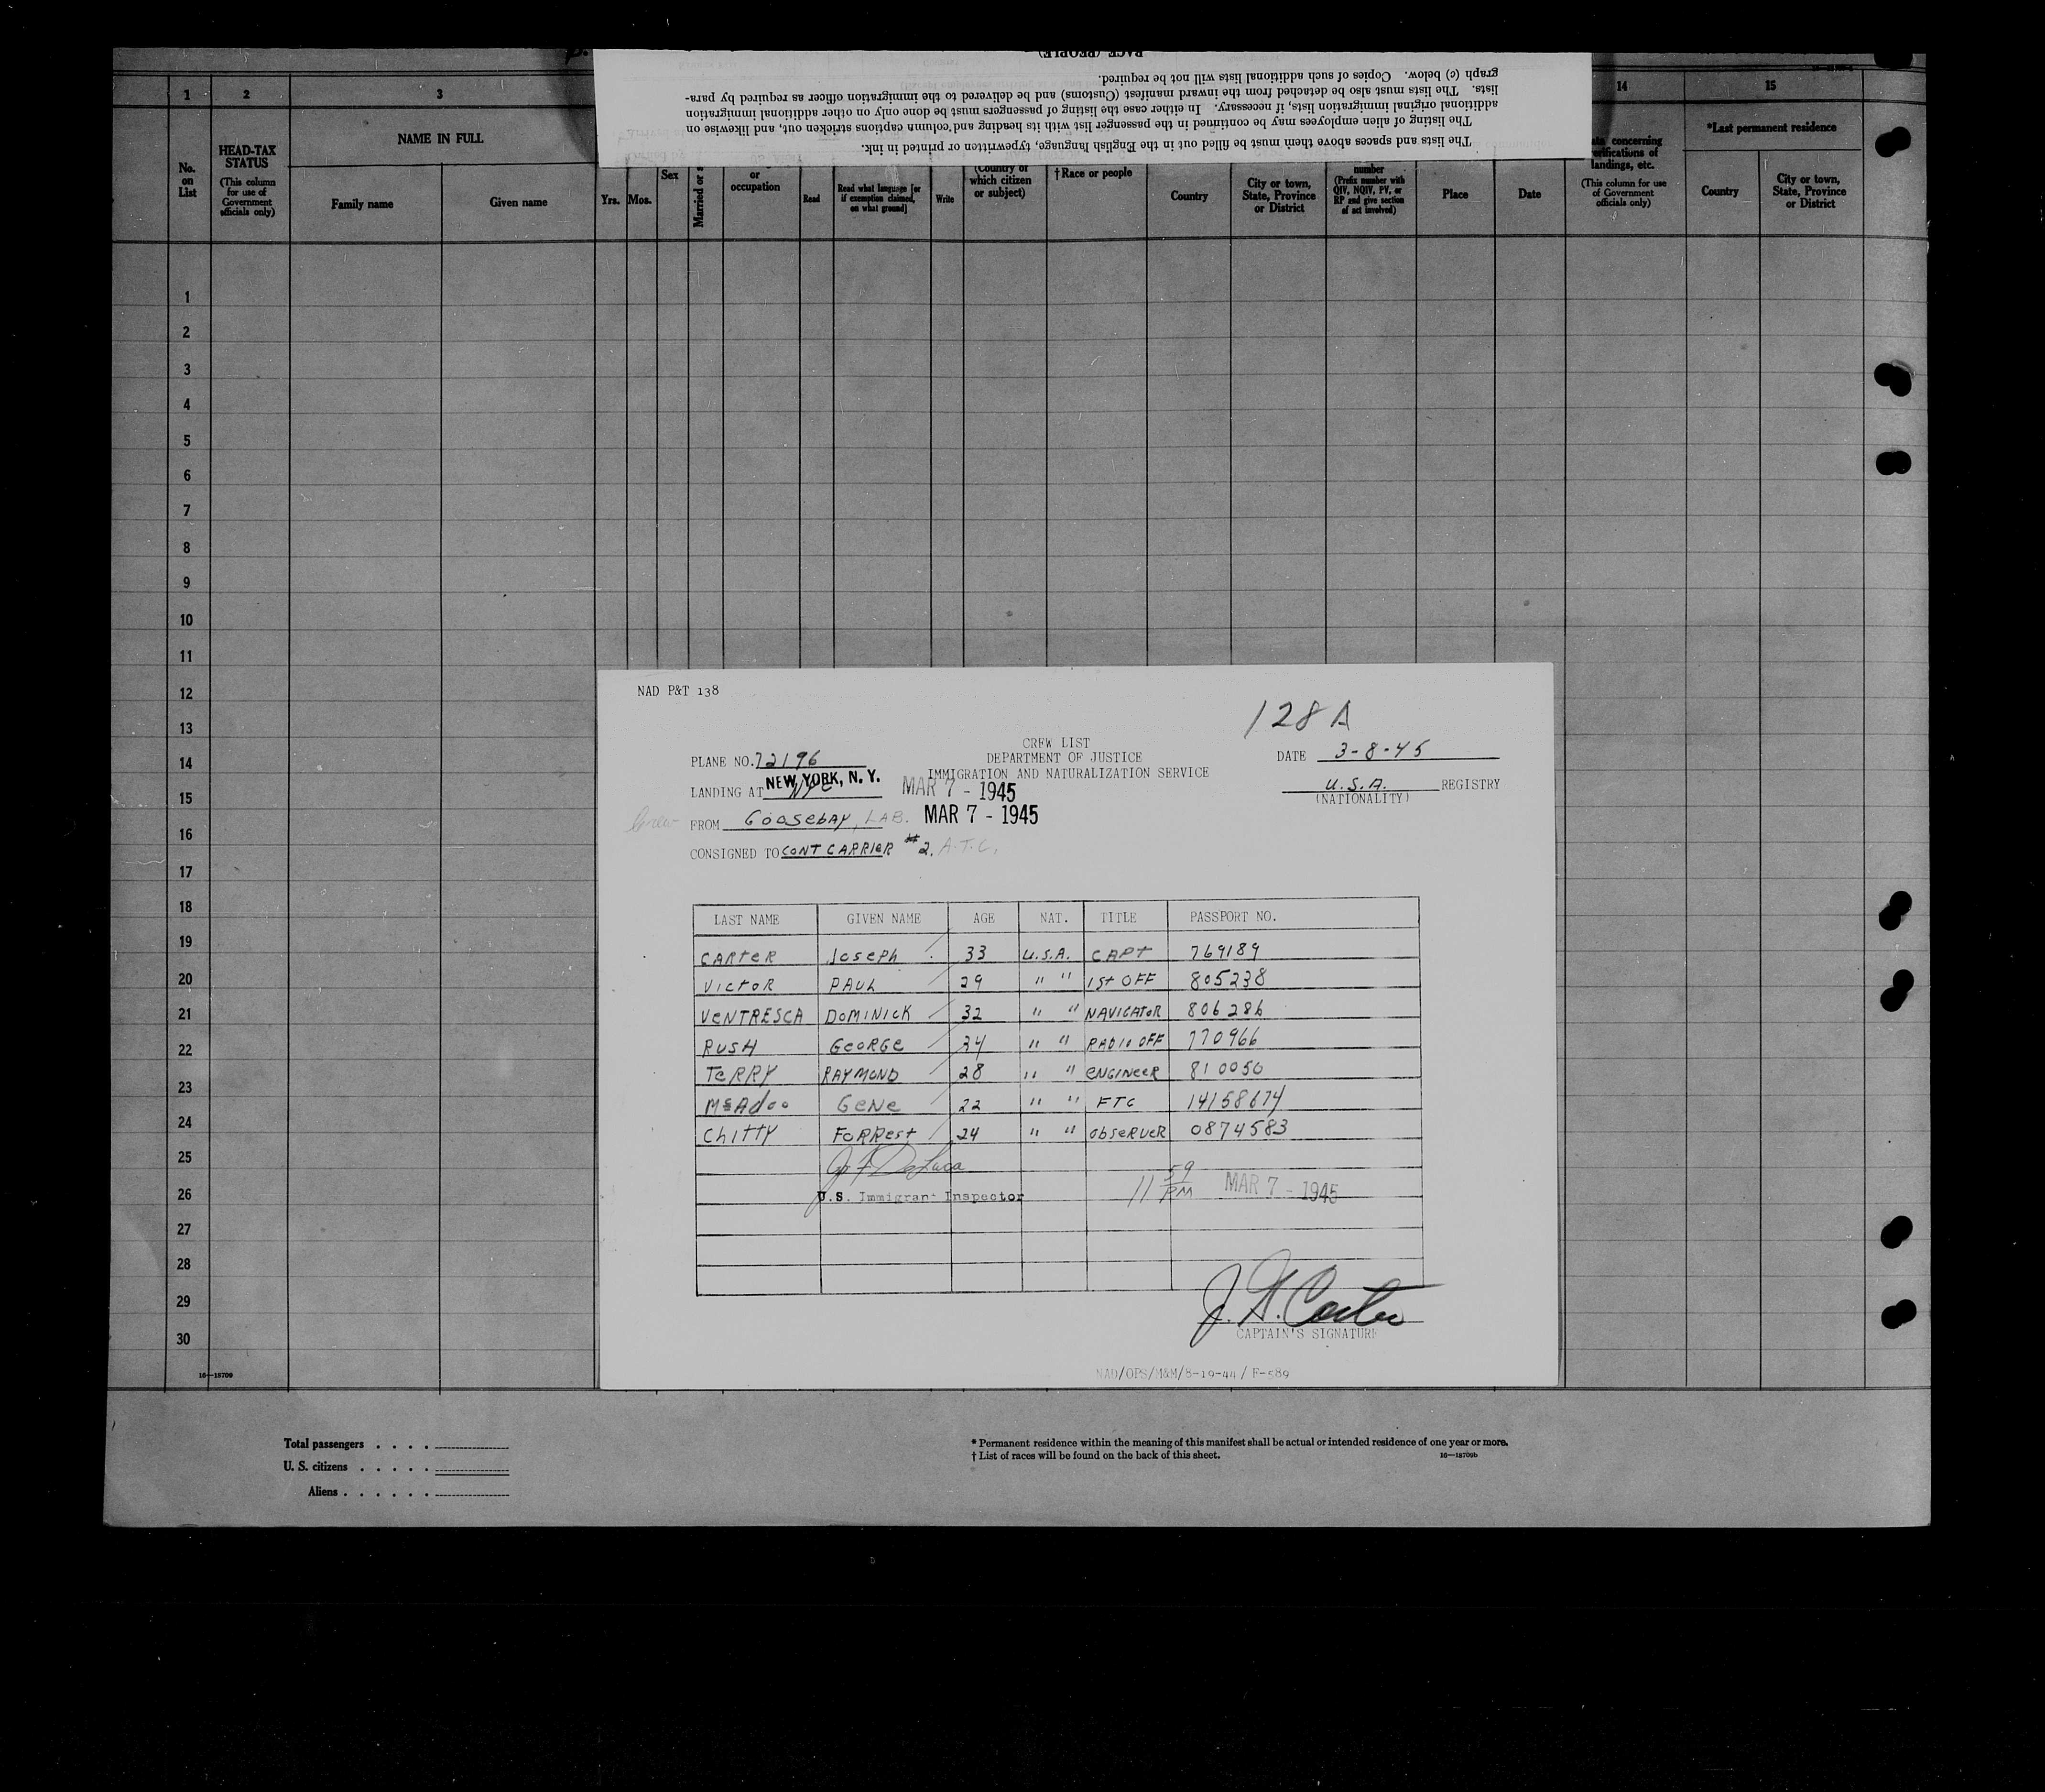 RACE (PEOPLE)
graph (c) below. Copies of such additional lists will not be required.
lists. The lists must also be detached from the inward manifest (Customs) and be delivered to the immigration officer as required by para-
additional original immigration lists, if necessary. In either case the listing of passengers must be done only on other additional immigration
The listing of alien employees may be continued in the passenger list with its heading and column captions stricken out, and likewise on
The lists and spaces above them must be filled out in the English language, typewritten or printed in ink.
1 2 3 14 15
No. on List
HEAD-TAX STATUS
(This column for use of Government officials only)
NAME IN FULL
Family name Given name
Yrs. Mos.
Sex
Married or s
or occupation
Read
Read what language [or if exemption claimed, on what ground]
Write
(Country of which citizen or subject)
†Race or people
Country
City or town, State, Province or District
number
(Prefix number with QIV, NQIV, PV, or RP and give section of act involved)
Place
Date
concerning
verifications of
landings, etc.
(This column for use of Government officials only)
*Last permanent residence
Country
City or town, State, Province or District
1
2
3
4
5
6
7
8
9
10
11
12
13
14
15
16
17
18
19
20
21
22
23
24
25
26
27
28
29
30
16—18709
NAD P&T 138
128 A
CREW LIST
PLANE NO. 72196 DEPARTMENT OF JUSTICE DATE 3-8-45
IMMIGRATION AND NATURALIZATION SERVICE
LANDING AT NYC NEW YORK, N. Y. MAR 7 - 1945 U.S.A. REGISTRY
(NATIONALITY)
Crew FROM GOOSEBAY, LAB. MAR 7 - 1945
CONSIGNED TO CONT CARRIER #2. A.T.C.
LAST NAME GIVEN NAME AGE NAT. TITLE PASSPORT NO.
CARTER JOSEPH 33 U.S.A. CAPT 769189
VICTOR PAUL 29 " " 1St OFF 805238
VENTRESCA DOMINICK 32 " " NAVIGATOR 806286
RUSH GEORGE 34 " " RADIO OFF 770966
TERRY RAYMOND 28 " " ENGINEER 810050
McAdoo GENE 22 " " FTC 14158674
CHITTY FORREST 24 " " OBSERVER 0874583
U.S. Immigrant Inspector 11 59 PM MAR 7 - 1945
J. H. Carter
CAPTAIN'S SIGNATURE
NAD/OPS/M&M/8-19-44/ F-589
Total passengers . . . .
U. S. citizens . . . . .
Aliens . . . . . .
* Permanent residence within the meaning of this manifest shall be actual or intended residence of one year or more.
† List of races will be found on the back of this sheet. 16—18709b